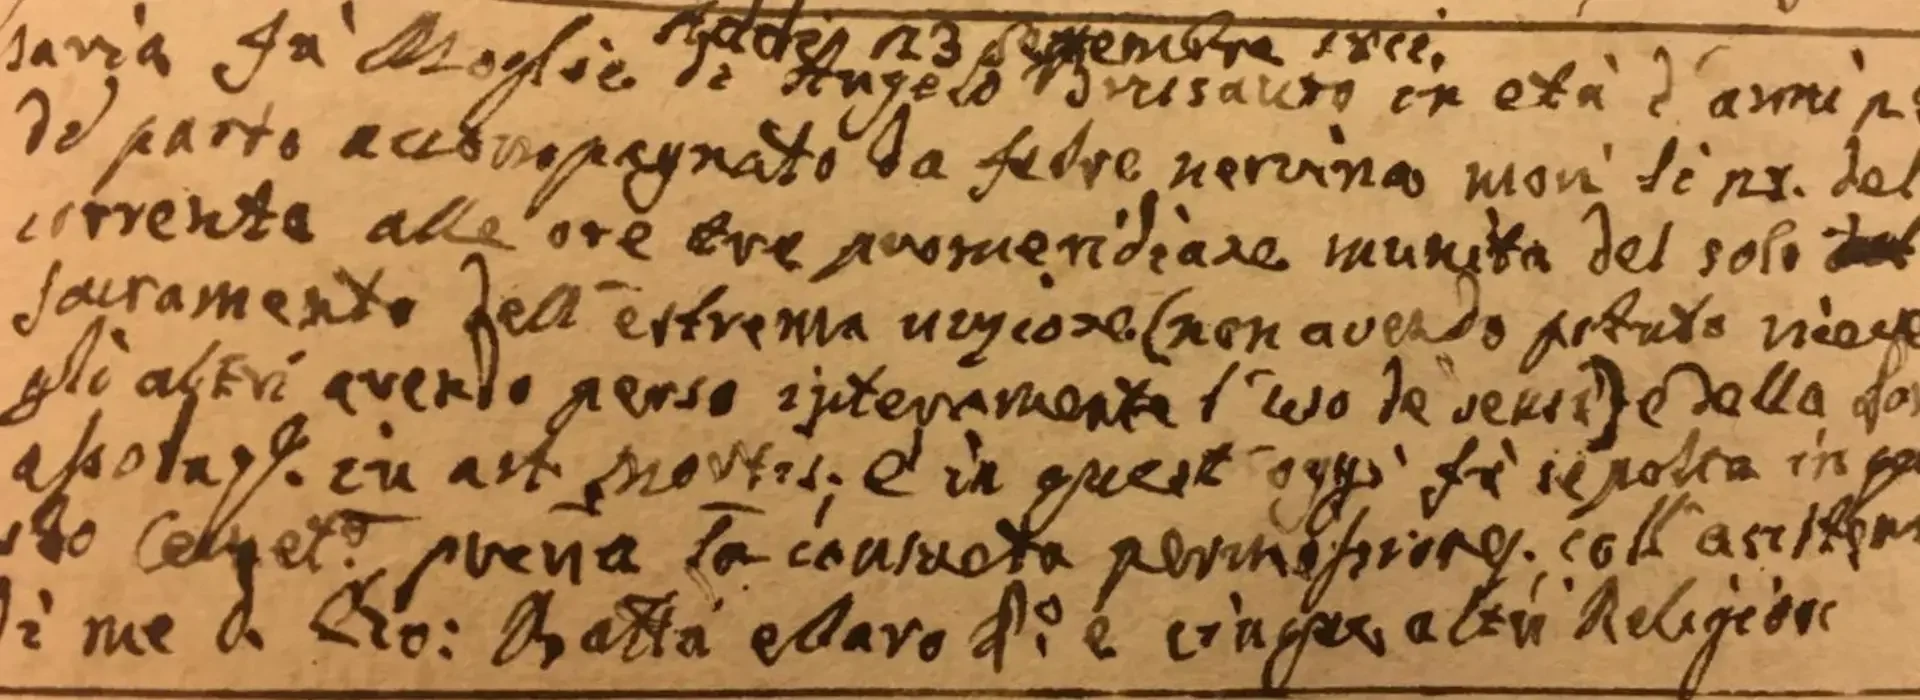 Addi 23 Settembre
saria fù Moglie di Angelo Brusauro in età d'anni
di parto accompagnato da febre nervina morì li del
corrente alle ore tre pomeridiane munita del solo
sacramento dell'estrema unzione (non avendo potuto
gli altri avendo perso interamente l'uso de sensi) e della
in art. mortis; e in quest'oggi fù sepolta in
sto Cemet.o previa la consueta permissione, coll'
di me D. Gio: Batta e cinque altri Religiosi